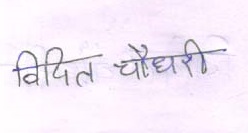 विदित चौधरी